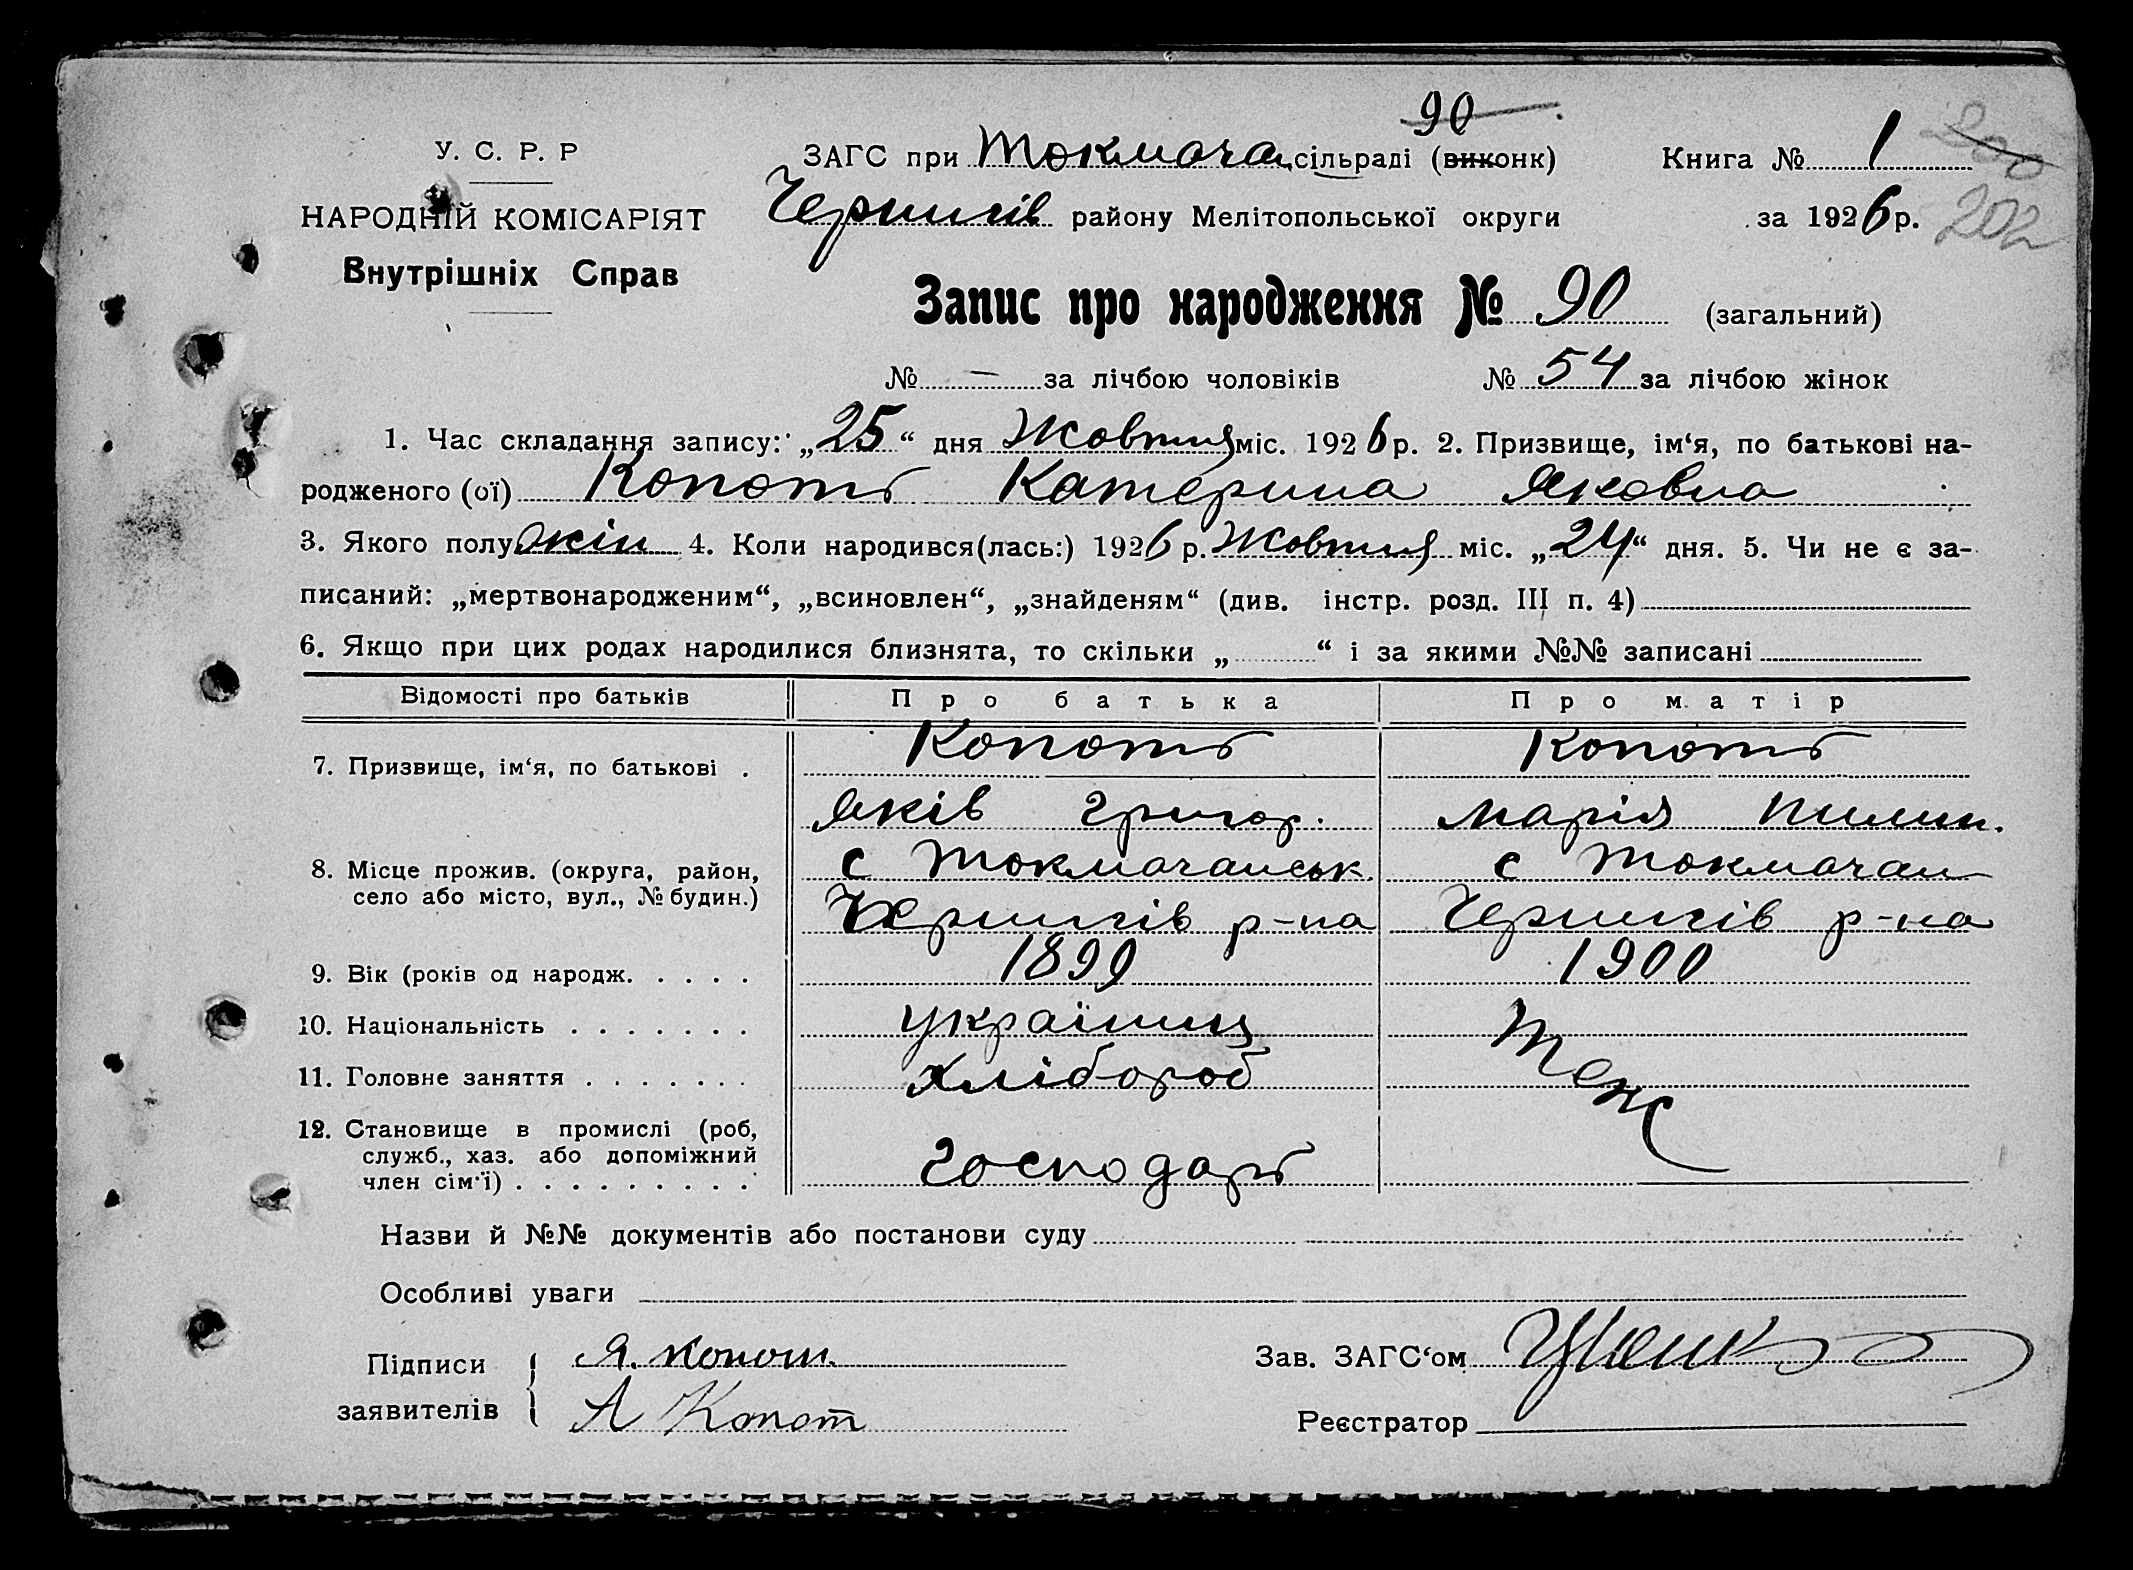 90
У. С. Р. Р
ЗАГС при Токмача сільраді (виконк)
Книга № 1
200
НАРОДНІЙ КОМІСАРІЯТ
Чернигів району Мелітопольської округи
за 1926 р.
202
Внутрішніх Справ
Запис про народження № 90 (загальний)
№ — за лічбою чоловіків № 54 за лічбою жінок
1. Час складання запису: „25“ дня Жовтня міс. 1926 р. 2. Призвище, ім‘я, по батькові на-
родженого (ої) Копоть Катерина Яковна
3. Якого полу жін 4. Коли народився(лась:) 1926 р. Жовтня міс. „24“ дня. 5. Чи не є за-
писаний: „мертвонародженим“, „всиновлен“, „знайденям“ (див. інстр. розд. III п. 4)
6. Якщо при цих родах народилися близнята, то скільки „ “ і за якими №№ записані
Відомості про батьків Про батька Про матір
7. Призвище, ім‘я, по батькові . Копоть Копоть
Яків Григор. Марія Пилип.
8. Місце прожив. (округа, район, с Токмачанськ. с Токмачан
село або місто, вул., № будин.)
Чернигів р-на Чернигів р-на
9. Вік (років од народж. . . . . 1899 1900
10. Національність . . . . . . . українец Теж
11. Головне заняття . . . . . . . хлібороб
12. Становище в промислі (роб,
служб., хаз. або допоміжний господарь
член сім‘ї) . . . . . . . . .
Назви й №№ документів або постанови суду
Особливі уваги
Підписи Я. Копот. Зав. ЗАГС‘ом
заявителів А Копот Реєстратор